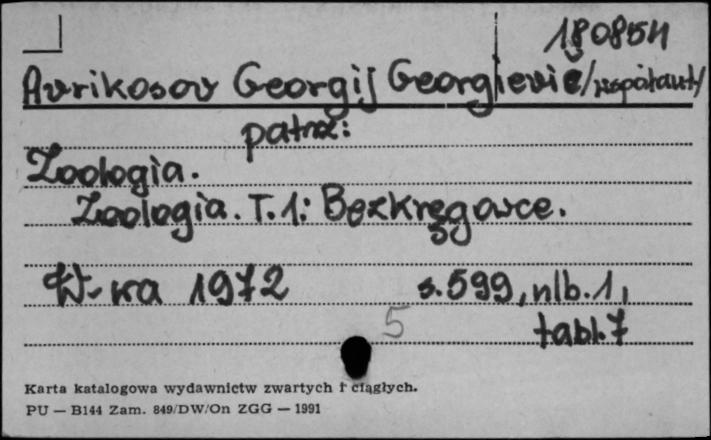 180854
Avrikosov Georgij Georgievič /współaut/
patrz:
Zoologia.
Zoologia. T.1: Bezkręgowce.
W-wa 1972 s.599, nlb.1,
5 tabl.7
Karta katalogowa wydawnictw zwartych i ciągłych.
PU — B144 Zam. 849/DW/On ZGG — 1991